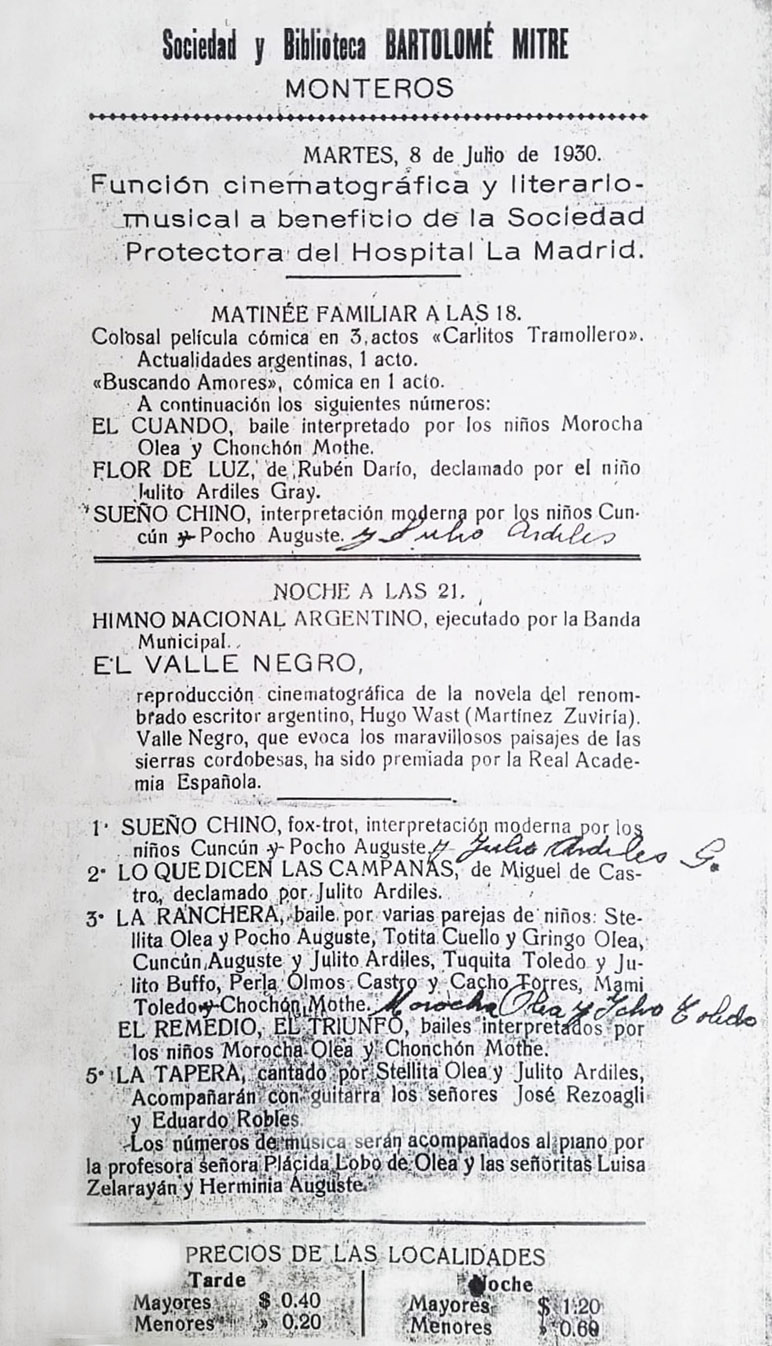 Sociedad y Biblioteca BARTOLOMÉ MITRE
MONTEROS
MARTES, 8 de Julio de 1930.
Función cinematográfica y literario-
musical a beneficio de la Sociedad
Protectora del Hospital La Madrid.
MATINÉE FAMILIAR A LAS 18.
Colosal película cómica en 3 actos «Carlitos Tramollero».
Actualidades argentinas, 1 acto.
«Buscando Amores», cómica en 1 acto.
A continuación los siguientes números:
EL CUANDO, baile interpretado por los niños Morocha
Olea y Chonchón Mothe.
FLOR DE LUZ, de Rubén Darío, declamado por el niño
Julito Ardiles Gray.
SUEÑO CHINO, interpretación moderna por los niños Cun-
cún y Pocho Auguste. y Julio Ardiles
NOCHE A LAS 21.
HIMNO NACIONAL ARGENTINO, ejecutado por la Banda
Municipal.
EL VALLE NEGRO,
reproducción cinematográfica de la novela del renom-
brado escritor argentino, Hugo Wast (Martínez Zuviría).
Valle Negro, que evoca los maravillosos paisajes de las
sierras cordobesas, ha sido premiada por la Real Acade-
mia Española.
1° SUEÑO CHINO, fox-trot, interpretación moderna por los
niños Cuncún y Pocho Auguste y Julio Ardiles G.
2° LO QUE DICEN LAS CAMPANAS, de Miguel de Cas-
tro, declamado por Julito Ardiles.
3° LA RANCHERA, baile por varias parejas de niños: Ste-
llita Olea y Pocho Auguste, Totita Cuello y Gringo Olea,
Cuncún Auguste y Julito Ardiles, Tuquita Toledo y Ju-
lito Buffo, Perla Olmos Castro y Cacho Torres, Mami
Toledo y Chochón Mothe. Morocha Olea y Toledo
EL REMEDIO, EL TRIUNFO, bailes interpretados por
los niños Morocha Olea y Chonchón Mothe.
5° LA TAPERA, cantado por Stellita Olea y Julito Ardiles,
Acompañarán con guitarra los señores José Rezoagli
y Eduardo Robles
Los números de música serán acompañados al piano por
la profesora señora Plácida Lobo de Olea y las señoritas Luisa
Zelarayán y Herminia Auguste.
PRECIOS DE LAS LOCALIDADES
Tarde
Mayores $ 0.40
Menores » 0.20
Noche
Mayores $ 1.20
Menores » 0.60